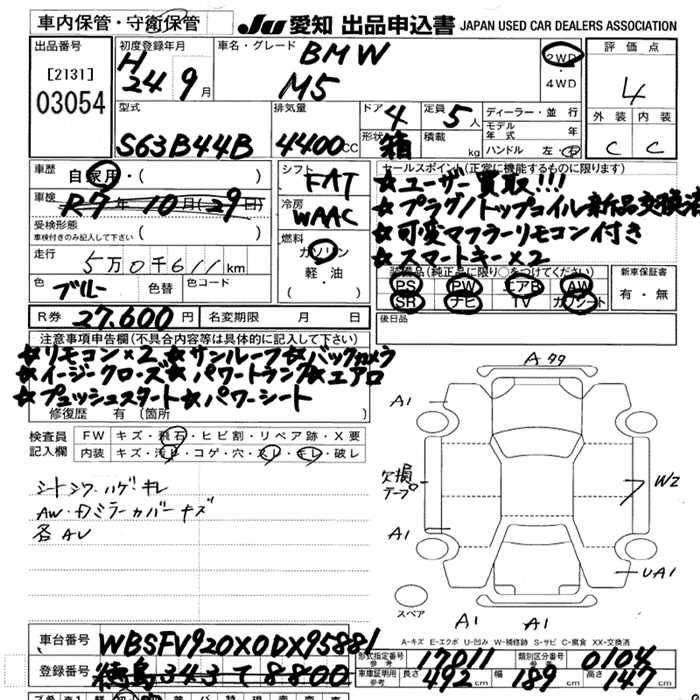 車内保管・守衛保管 JU 愛知 出品申込書 JAPAN USED CAR DEALERS ASSOCIATION
出品番号
[2131]
03054
初度登録年月
H
24 9月
車名・グレード
BMW
M5
2WD
・
4WD
評価点
4
外装 内装
C C
型式
S63B44B
排気量
4400CC
ドア 4
形状 箱
定員 5人
積載 kg
ディーラー・並行
モデル
年式 年
ハンドル 左・右
車歴
自家用・( )
車検
R7年10月(29日)
受検形態
車検付きのみ記入して下さい ( )
走行
5万0千611km
色 ブルー 色替 色コード
シフト
FAT
冷房
WAAC
燃料
ガソリン
軽・油
( )
セールスポイント(正常に機能するものに限ります)
☆ユーザー買取!!!
☆プラグ/トップコイル新品交換済
☆可変マフラーリモコン付き
☆スマートキー×2
装備品(純正品に限り○をつけてください)
PS PW エアB AW
SR ナビ TV カワシート
新車保証書
有・無
後日品
R券 27.600円 名変期限 月 日
注意事項申告欄(不具合内容等は具体的に記入して下さい)
☆リモコン×2 ☆サンルーフ☆バックカメラ
☆イージークローズ☆パワートランク☆エアロ
☆プッシュスタート☆パワーシート
修復歴 有 〔箇所 〕
検査員
記入欄
FW キズ・飛石・ヒビ割・リペア跡・X要
内装 キズ・汚レ・コゲ・穴・スレ・キレ・破レ
シートシワ・ハゲ・キレ
AW・ドミラーカバーキズ
各AU
A99
A1
欠損
テープ
W2
A1
UA1
A1 A1
スペア
A-キズ E-エクボ U-凹み W-補修跡 S-サビ C-腐食 XX-交換済
車台番号 WBSFV920X0DX95881
登録番号 徳島343て8800
形式指定番号
参考 17011
類別区分番号
参考 0104
車庫証明用
参考 長さ 492cm 幅 189cm 高さ 147cm